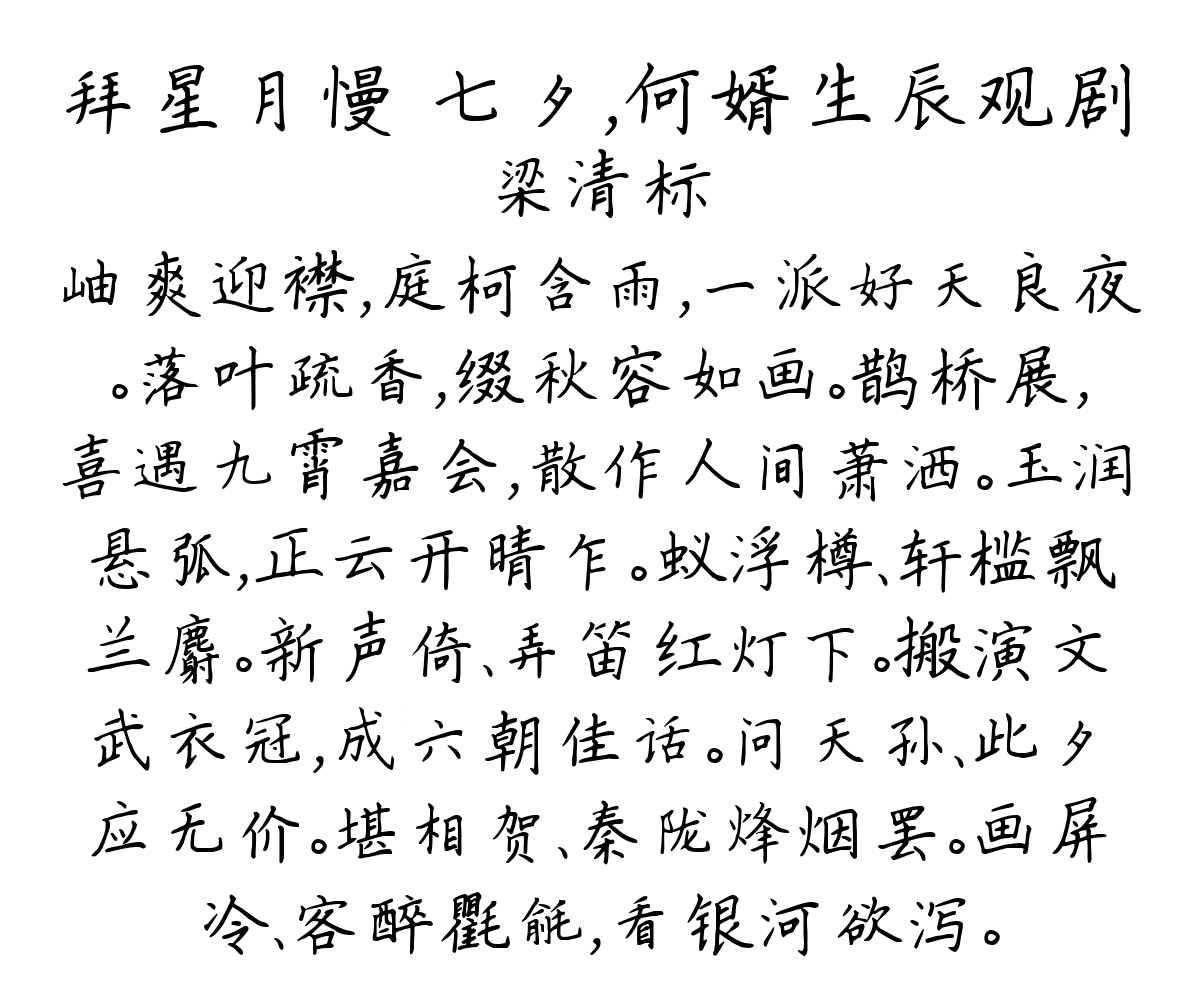 拜星月慢 七夕,何婿生辰观剧
梁清标
岫爽迎襟,庭柯含雨,一派好天良夜
。落叶疏香,缀秋容如画。鹊桥展,
喜遇九霄嘉会,散作人间萧洒。玉润
悬弧,正云开晴乍。蚁浮樽、轩槛飘
兰麝。新声倚、弄笛红灯下。搬演文
武衣冠,成六朝佳话。问天孙、此夕
应无价。堪相贺、秦陇烽烟罢。画屏
冷、客醉氍毹,看银河欲泻。